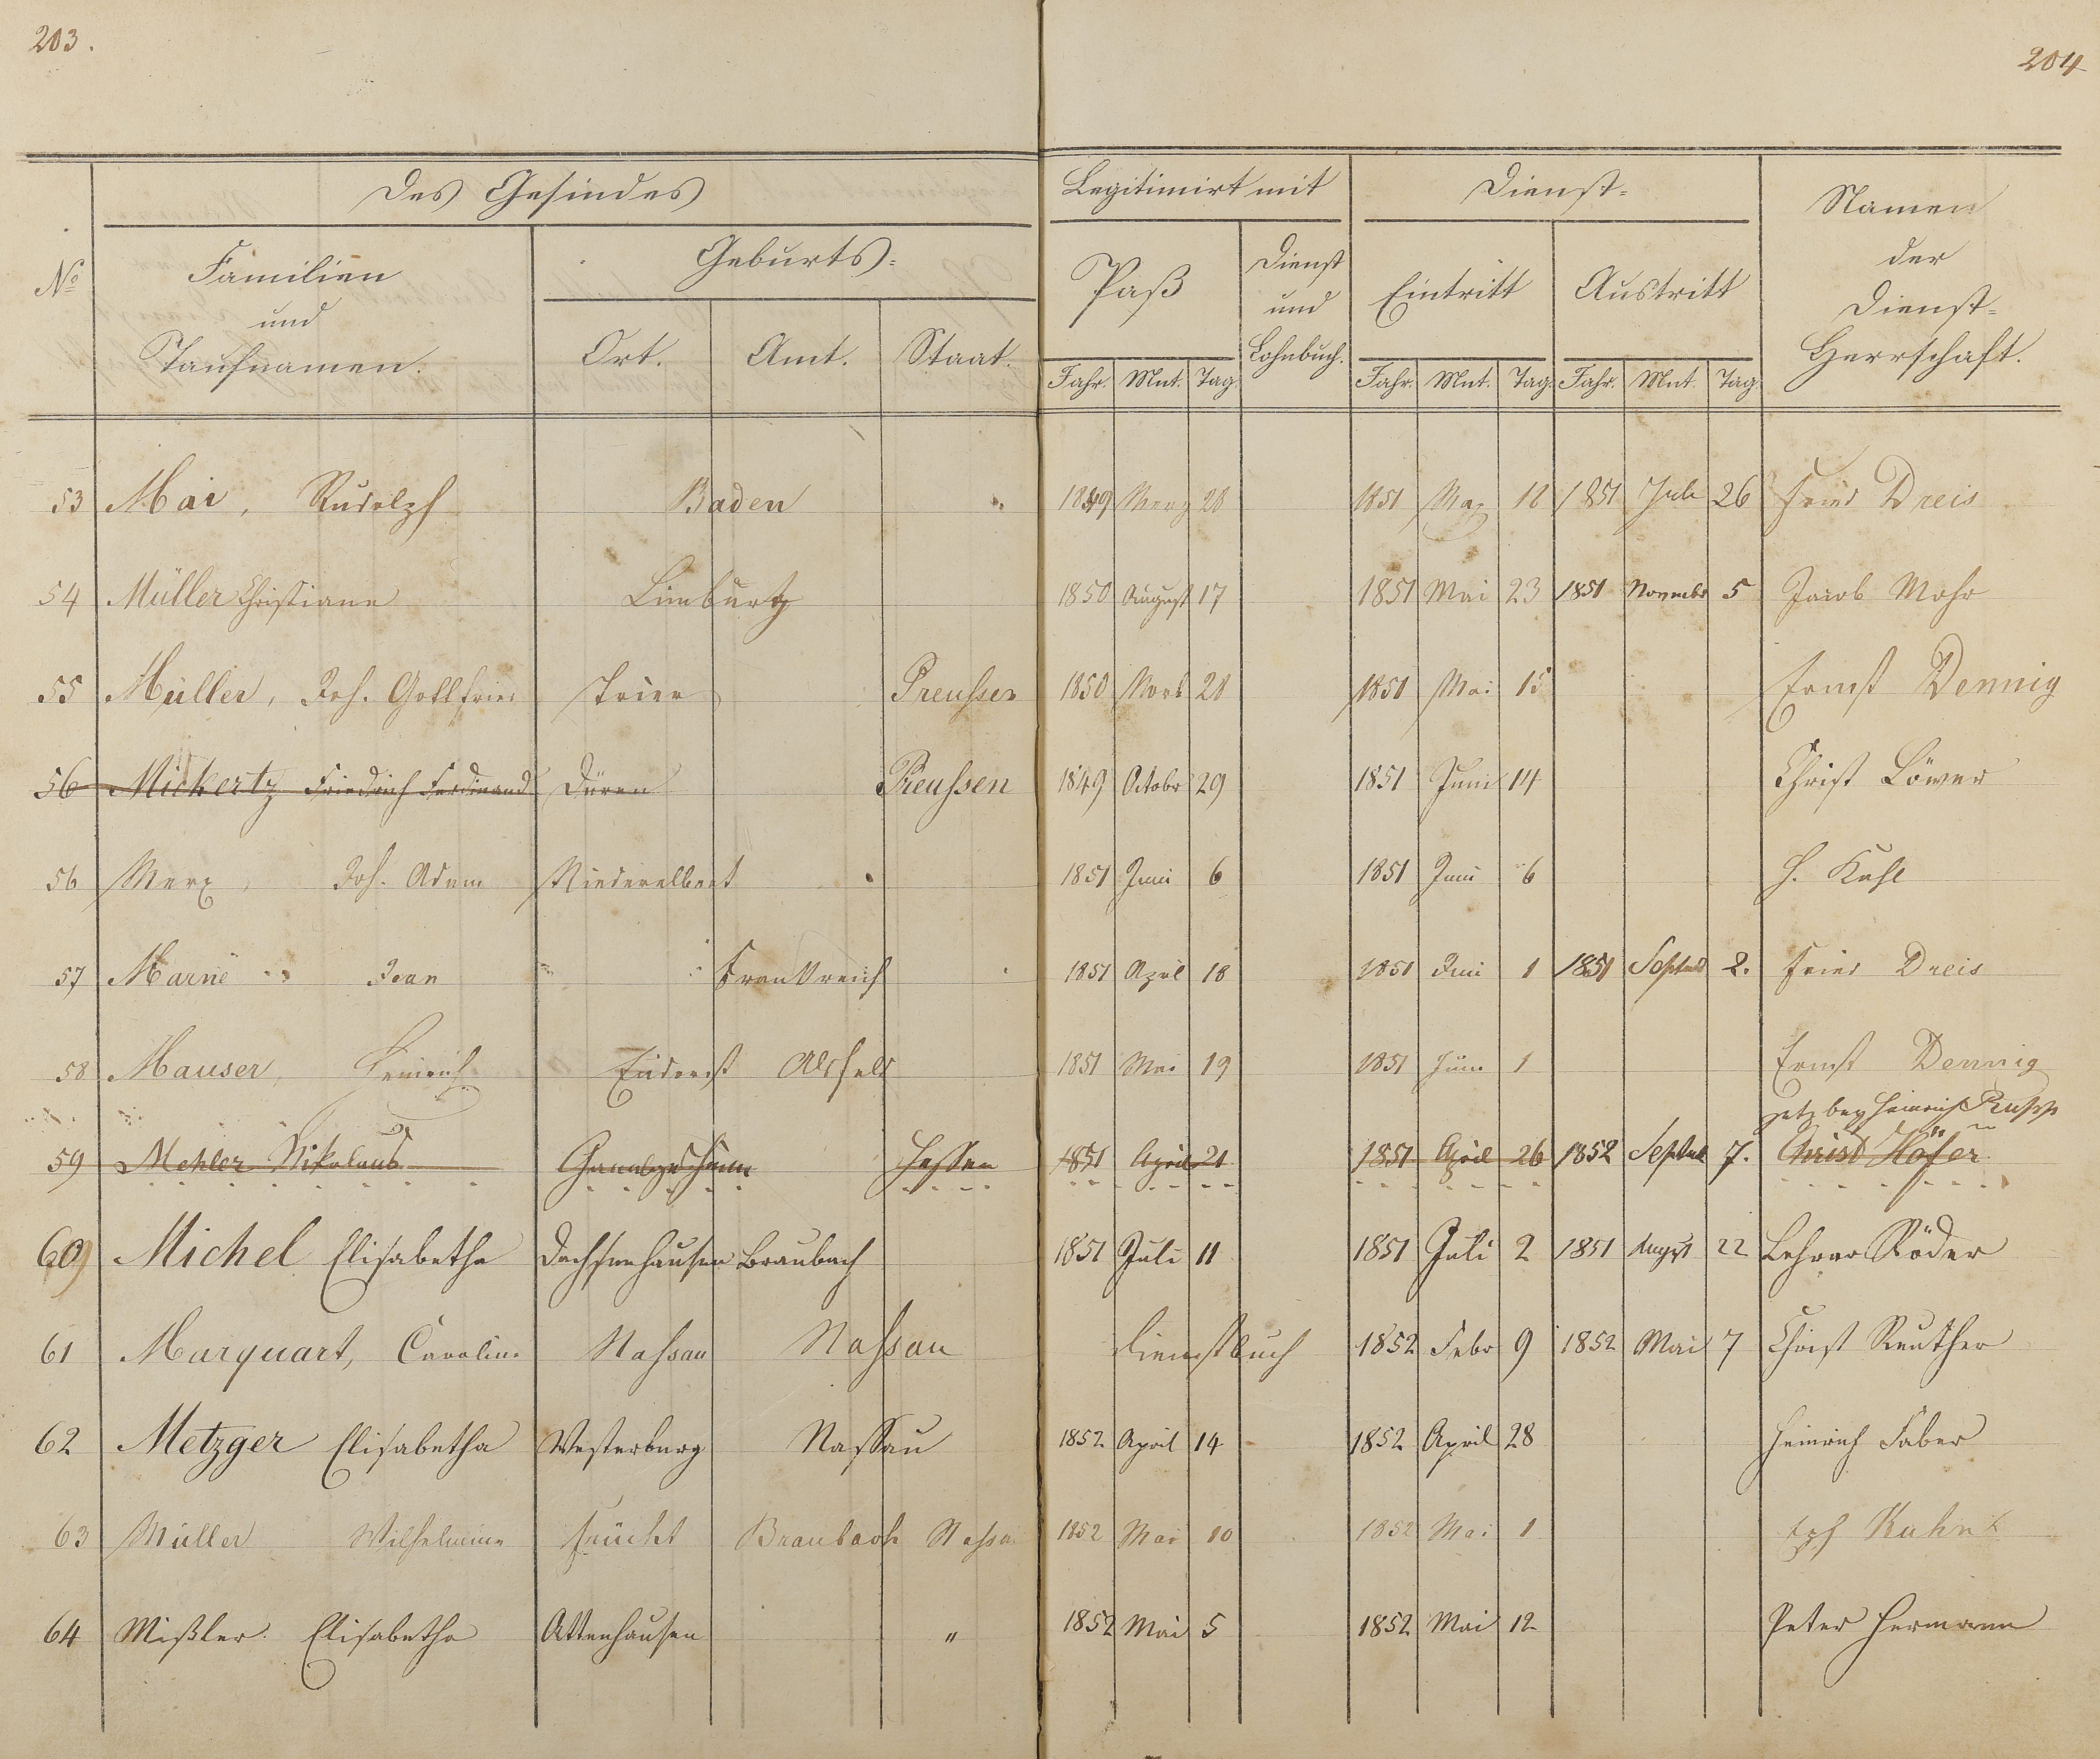 203.
204
Des Gesindes
Legitimirt mit
Dienst=
Namen
der
Dienst=
Herrschaft.
No
Familien
und
Taufnamen.
Geburts=
Ort. Amt. Staat.
Paß
Dienst
und
Lohnbuch.
Eintritt Austritt
Jahr. Mnt. Tag. Jahr. Mnt. Tag. Jahr. Mnt. Tag
53 Mai, Rudolph Baden 1849 Merz 28 1851 May 18 1851 Juli 26 Fried Dreis
54 Müller Christiane Limburg 1850 August 17 1851 Mai 23 1851 Novembr 5 Jacob Mohr
55 Müller, Joh. Gottfried Trier Preussen 1850 28 1851 Mai 15 Ernst Dennig
56 Mickertz Friedrich Ferdinand Düren Preussen 1849 Octobr 29 1851 Juni 14 Christ Löwer
56 Merx, Joh. Adam Niederelbert 1851 Juni 6 1851 Juni 6 H. Kuhl
57 Marné Jean Frankreich 1851 April 18 1851 Juni 1 1851 Septmb 2. Fried Dreis
58 Mauser, Heinrich Alsfeld 1851 Mai 19 1851 Juni 1 Ernst Dennig
jetz bey Heinrich
59 Mehler Nikolaus Hessen 1851 April 21 1851 April 26 1852 Septbr 7. Christ Höfer
60 Michel Elisabetha Dachsenhausen Braubach 1851 Juli 11 1851 Juli 2 1851 August 22 Lehrer Röder
61 Marquart, Caroline Nassau Nassau Dienstbuch 1852 Febr 9 1852 Mai 7 Christ Reuther
62 Metzger Elisabetha Westerburg Nassau 1852 April 14 1852 April 28 Heinrich Faber
63 Müller Wilhelmine Frücht Braubach Nassau 1852 Mai 10 1852 Mai 1
64 Mißler. Elisabetha Attenhausen " 1852 Mai 5 1852 Mai 12 Peter Hermann